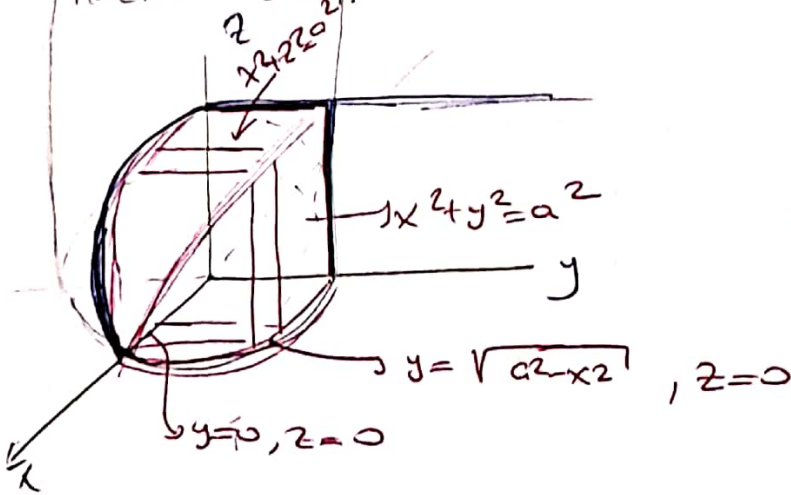 z
x²+z²=a²
x²+y²=a²
y
y = √a²-x² , z=0
y=0, z=0
x